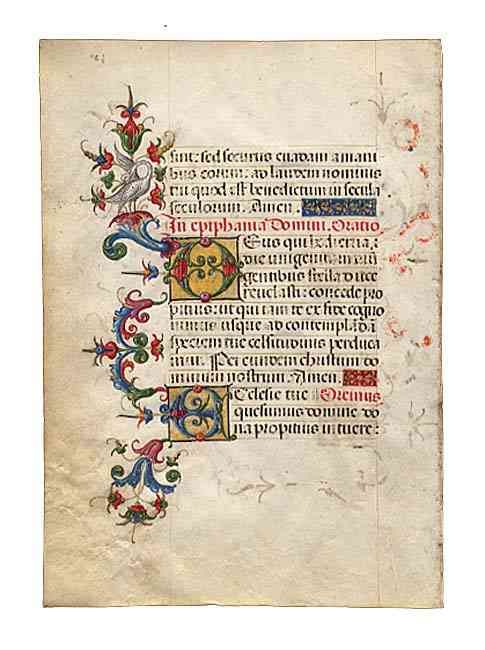 sint: sed securus euadam a mani
bus eorum: ad laudem nominis
tui quod est benedictum in secula
seculorum. Amen.
In epiphania Domini. Oratio
Deus qui hodierna:
die unigenitum tuũ
gentibus stella duce
reuelasti: concede pro
pitius: ut qui iam te ex fide cogno
uimus usque ad contemplãdã
speciem tue celsitudinis perduca
mur. Per eundem christum do
minum nostrum. Amen.
Eclesie tue Oremus
quesumus domine do
na propitius intuere: